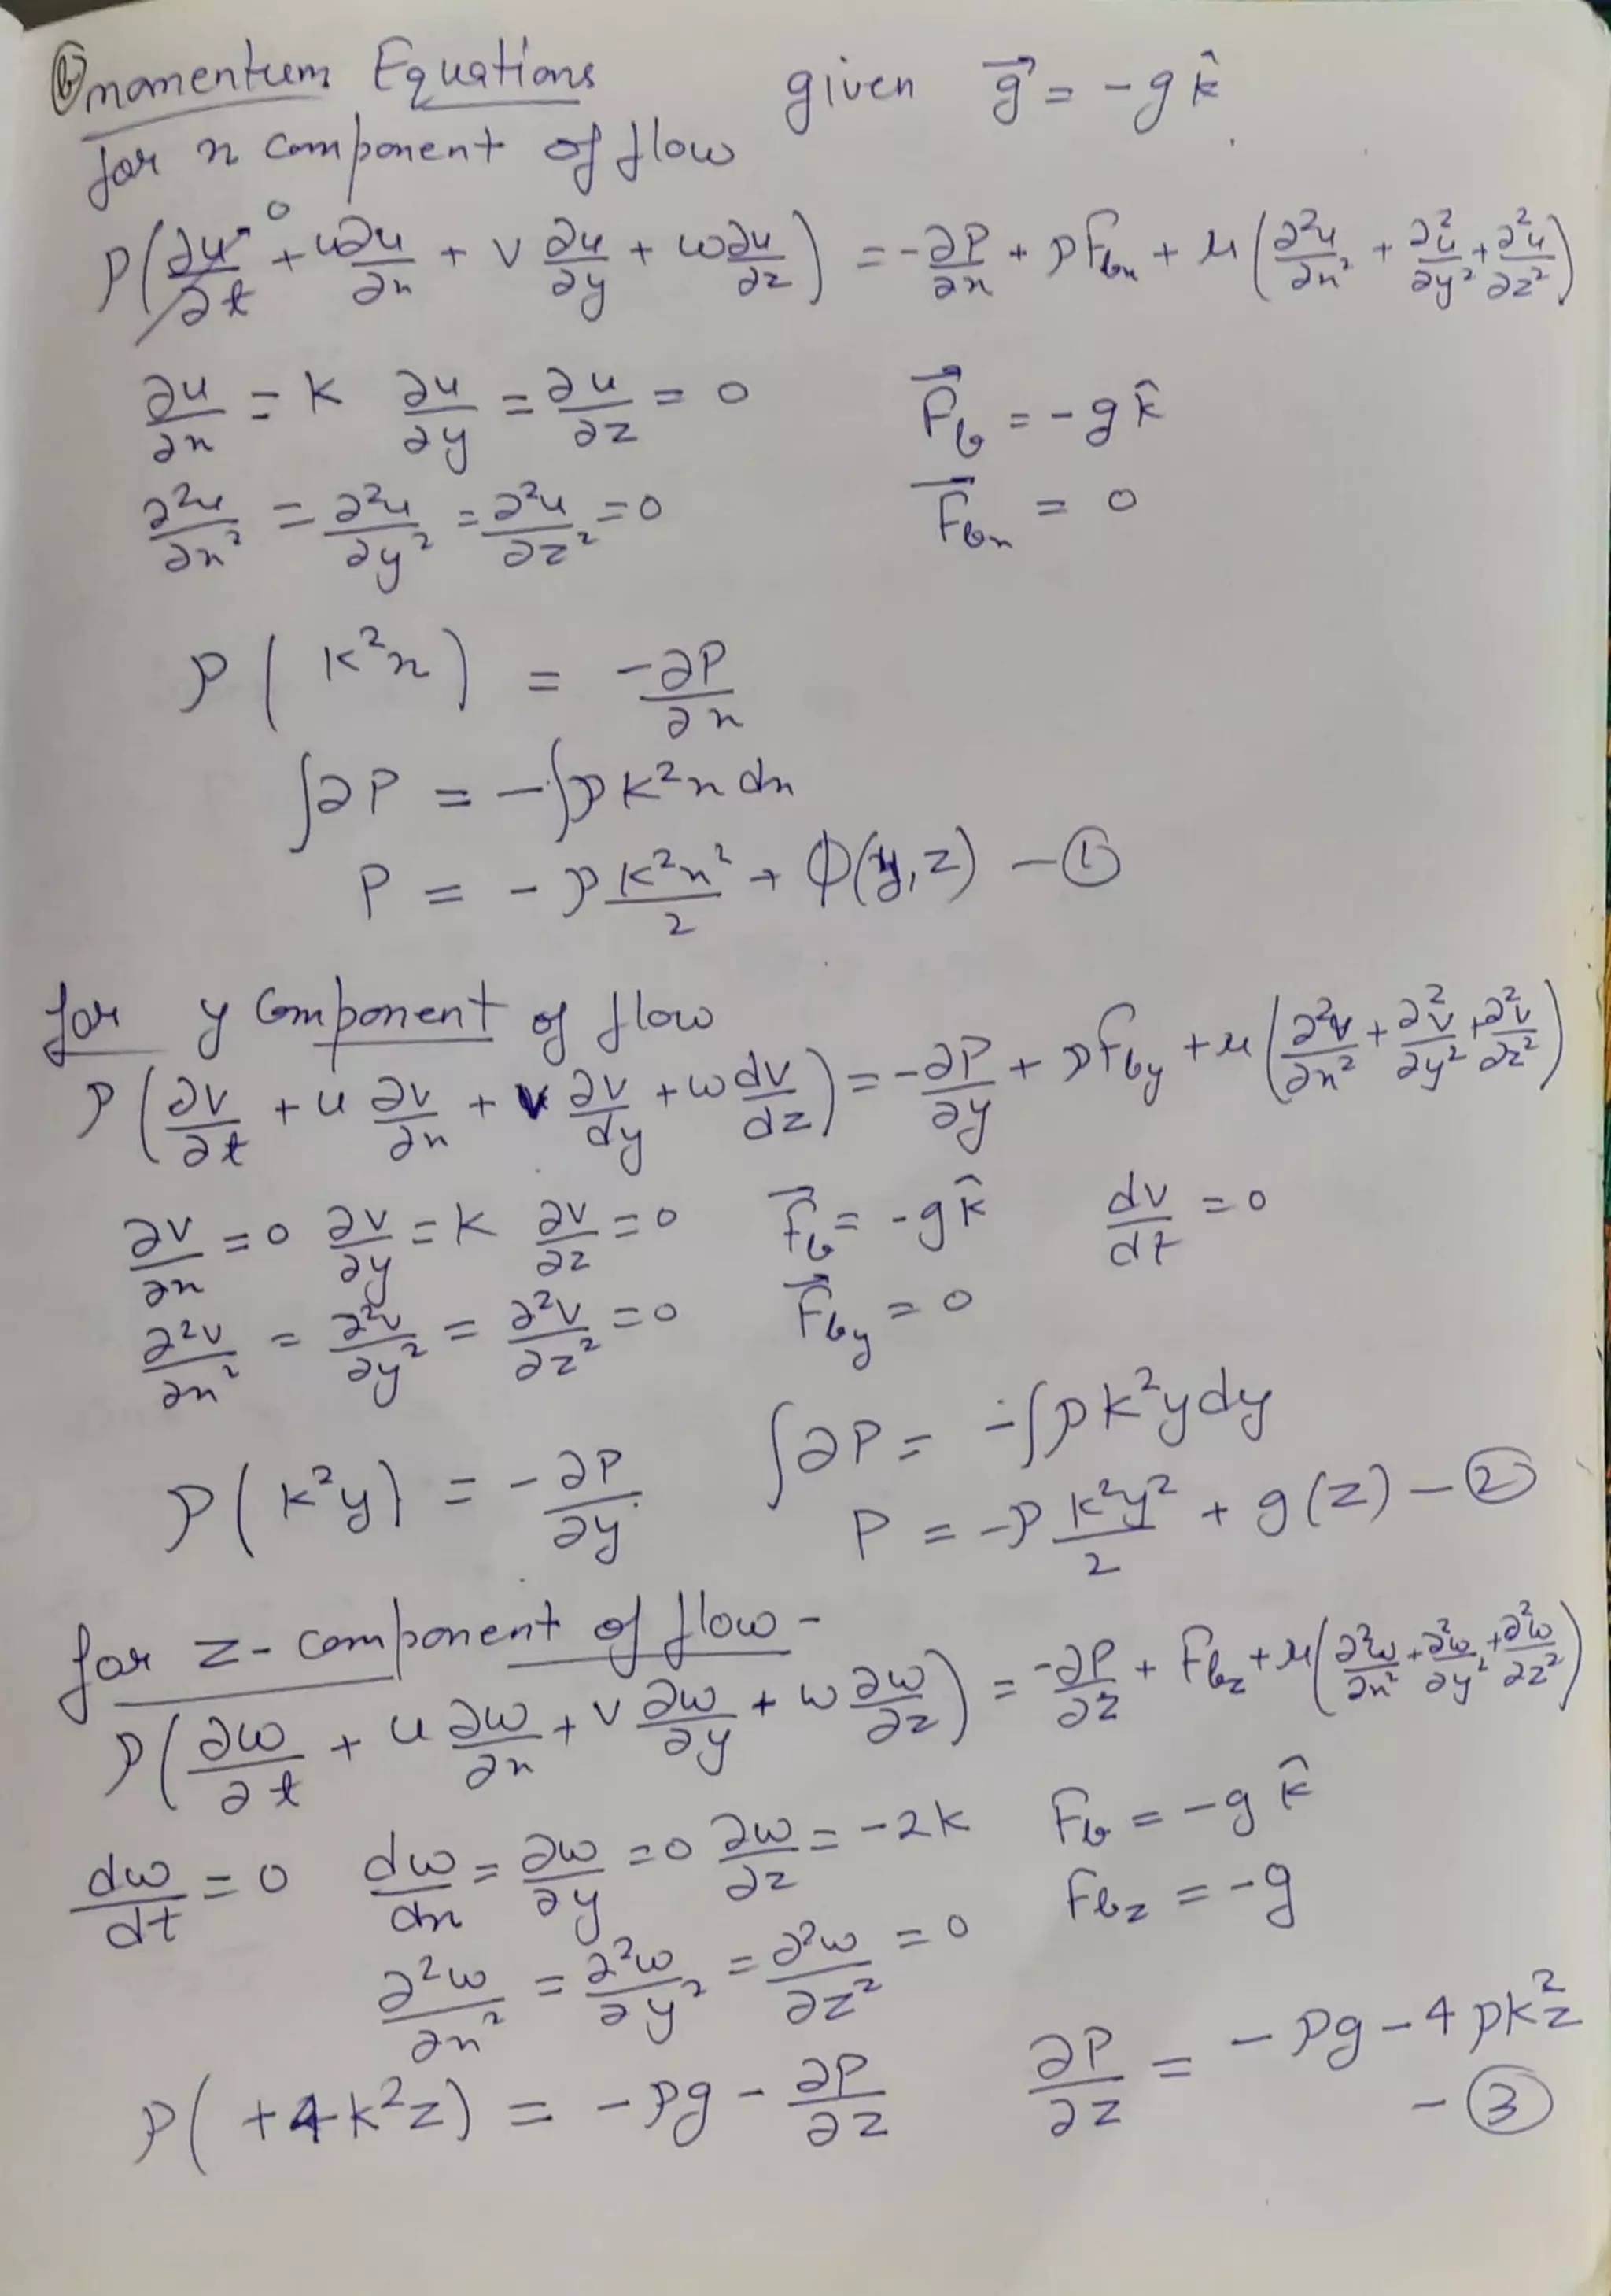 ⓑ momentum Equations given g⃗ = -g k̂
for x component of flow
ρ(∂u/∂t→0 + u∂u/∂x + v ∂u/∂y + w∂u/∂z) = -∂P/∂x + ρFbx + μ(∂²u/∂x² + ∂²u/∂y² + ∂²u/∂z²)
∂u/∂x = K ∂u/∂y = ∂u/∂z = 0 F⃗b = -g k̂
∂²u/∂x² = ∂²u/∂y² = ∂²u/∂z² = 0 F⃗bx = 0
ρ( K²x ) = -∂P/∂x
∫∂P = -∫ρK²x dx
P = -ρ K²x²/2 + ϕ(y,z) - ①
for y component of flow
ρ(∂v/∂t + u ∂v/∂x + v ∂v/dy + w dv/dz) = -∂P/∂y + ρFby + μ(∂²v/∂x² + ∂²v/∂y² + ∂²v/∂z²)
∂v/∂x = 0 ∂v/∂y = K ∂v/∂z = 0 F⃗b = -g k̂ dv/dt = 0
∂²v/∂x² = ∂²v/∂y² = ∂²v/∂z² = 0 F⃗by = 0
∫∂P = -∫ρK²y dy
ρ( K²y ) = -∂P/∂y P = -ρ K²y²/2 + g(z) - ②
for z- component of flow -
ρ(∂w/∂t + u ∂w/∂x + v ∂w/∂y + w ∂w/∂z) = -∂P/∂z + Fbz + μ(∂²w/∂x² + ∂²w/∂y² + ∂²w/∂z²)
dw/dt = 0 dw/dx = ∂w/∂y = 0 ∂w/∂z = -2K Fb = -g k̂
Fbz = -g
∂²w/∂x² = ∂²w/∂y² = ∂²w/∂z² = 0
ρ( +4K²z ) = -ρg - ∂P/∂z ∂P/∂z = -ρg - 4ρK²z
- ③